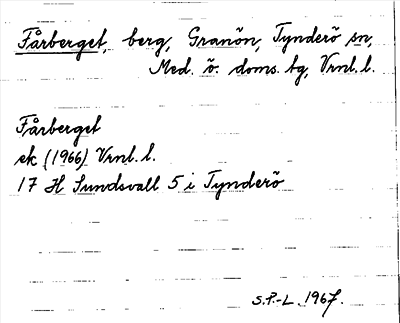 Fårberget, berg, Granön, Tynderö sn,
Med. ö. doms. tg, Vrnl. l.
Fårberget
ek (1966) Vrnl. l.
17 H Sundsvall 5 i Tynderö
S.P.-L. 1967.